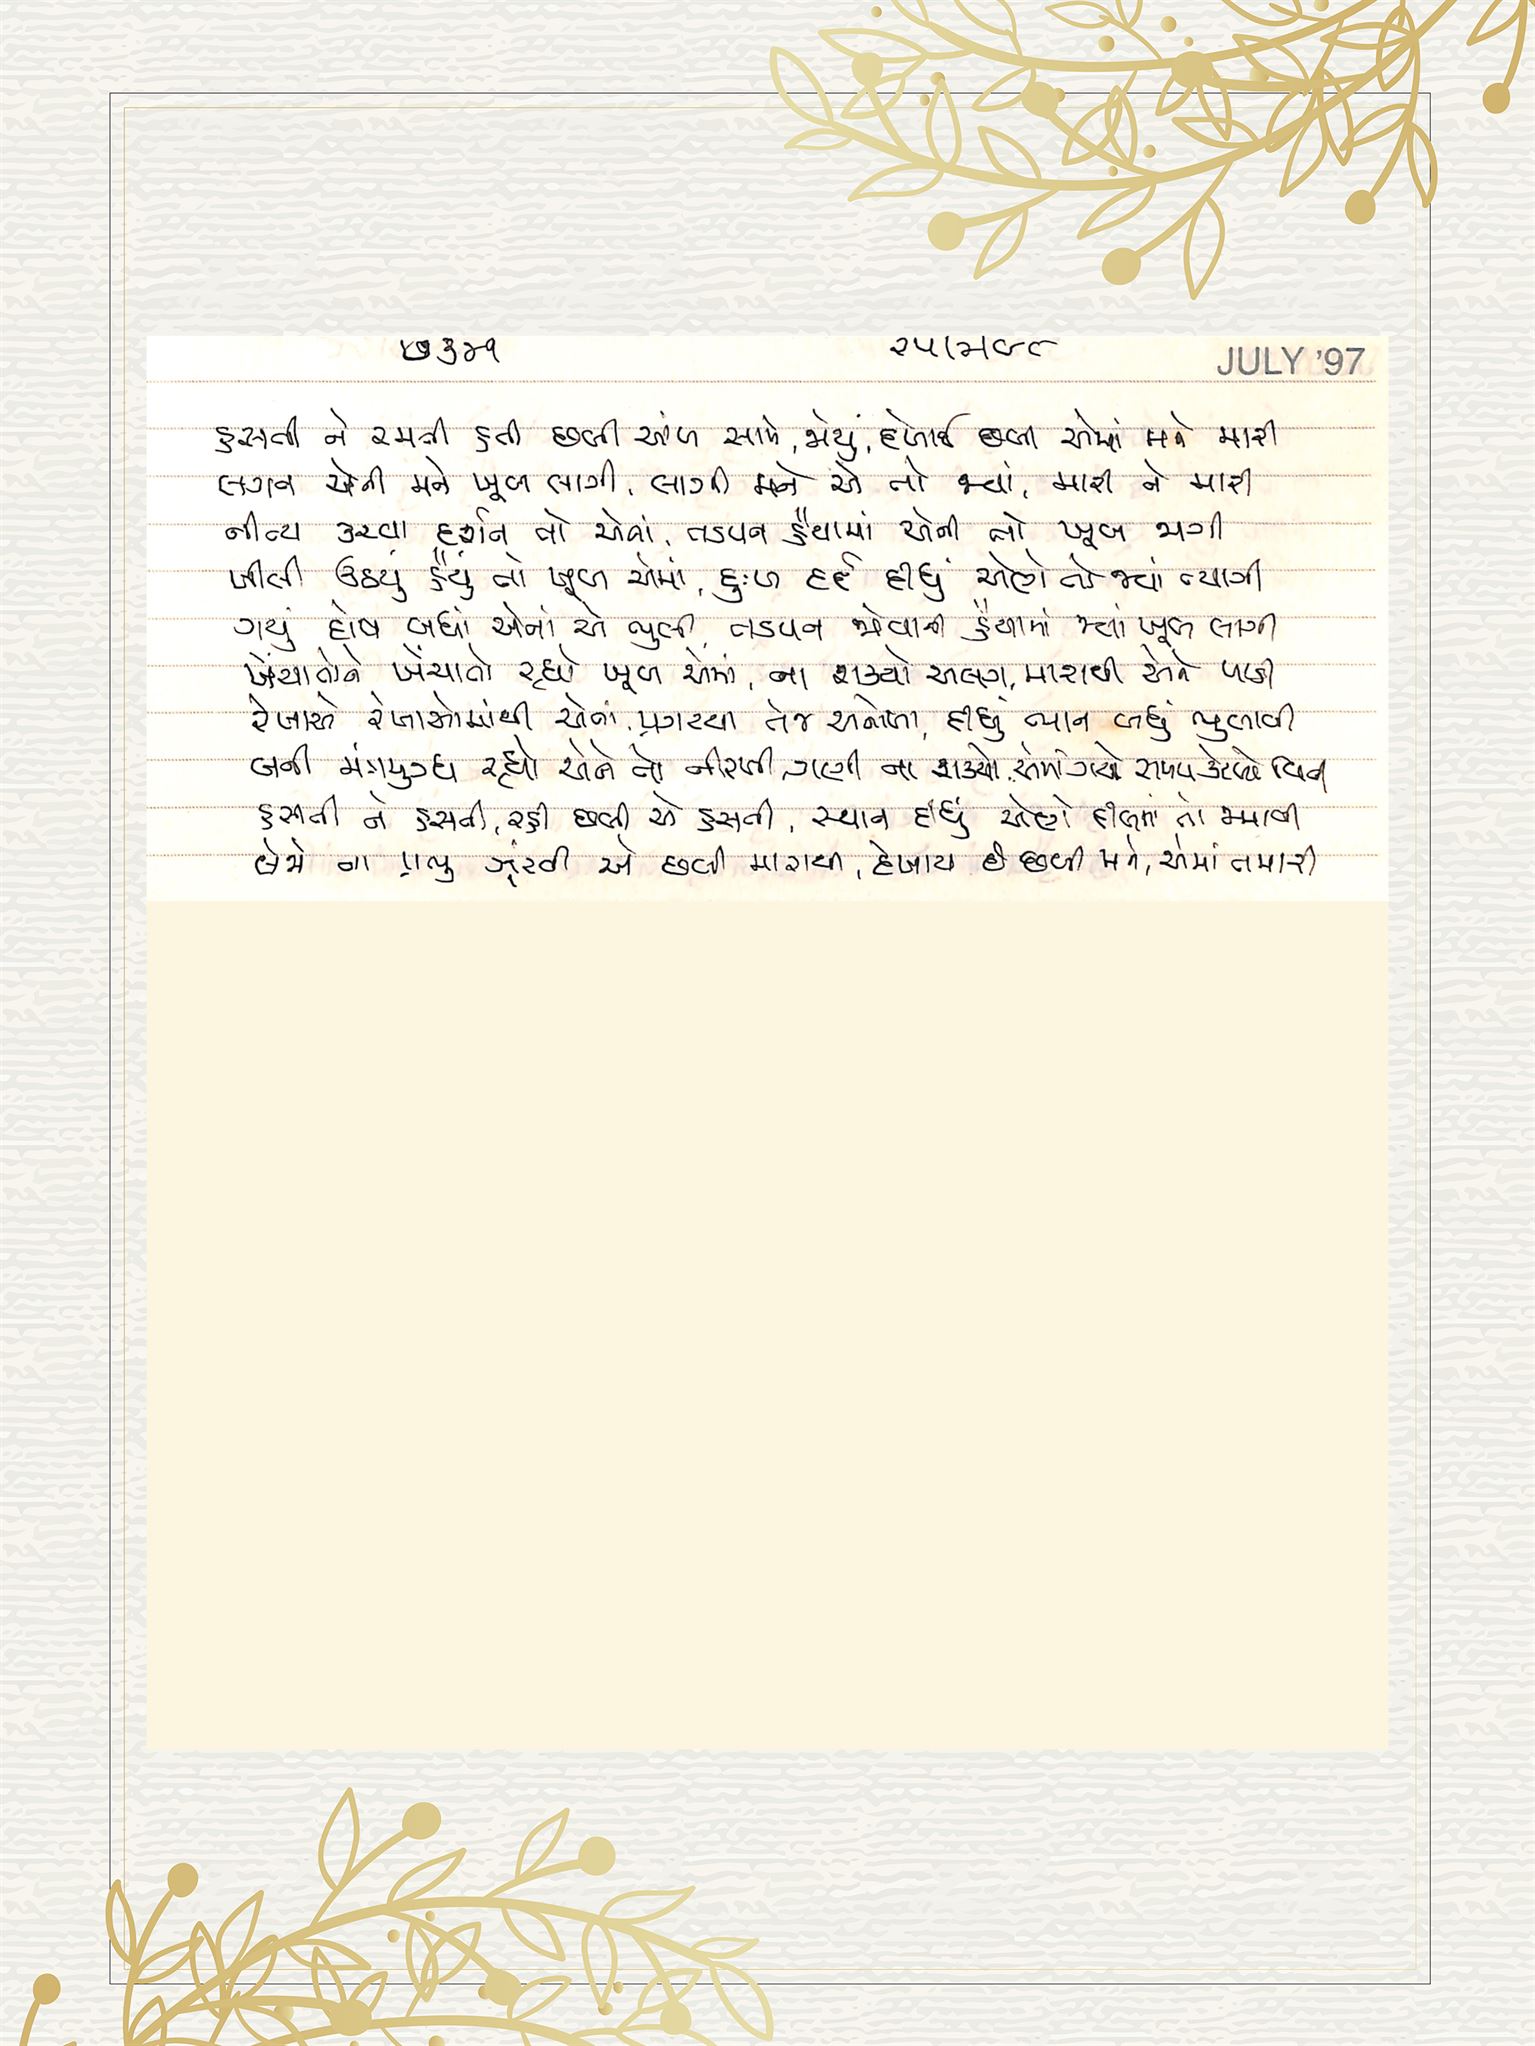 ૭૩૪૧ ૨૫।૪।૯૮ JULY '97
હસતી ને રમતી હતી છબી આંખ સામે, જોયું, દેખાઈ છબી એમાં મને મારી
લગન એની મને ખૂબ લાગી, લાગી મને એ તો જ્યાં, મારી ને મારી
નીત્ય કરવા દર્શન તો એનાં, તડપન હૈયામાં એની તો ખૂબ જાગી
ખીલી ઉઠયું હૈયું તો ખૂબ એમાં, દુઃખ દર્દ દીધું એણે તો જ્યાં ત્યાગી
ગયું દોષ બધાં એનાં એ ભુલી, તડપન જોવાની હૈયામાં જ્યાં ખૂબ લાગી
ખેંચાતોને ખેંચાતો રહ્યો ખૂબ એમાં, ના શક્યો અલગ, મારાથી એને પાડી
રેખાએ રેખાઓમાંથી એનાં, પ્રગટયા તેજ અનોખા, દીધું ભાન બધું ભુલાવી
બની મંત્રમુગ્ધ રહ્યો એને તો નીરખી, ગણી ના શક્યો, એમાં ગયો સમય કેટલો વિતી
હસતી ને હસતી, રહી છબી એ હસતી, સ્થાન દીધું એણે દીલમાં તો જમાવી
લેજો ના પ્રભુ ઝૂંટવી એ છબી મારાથી, દેખાય છે છબી મને, એમાં તમારી